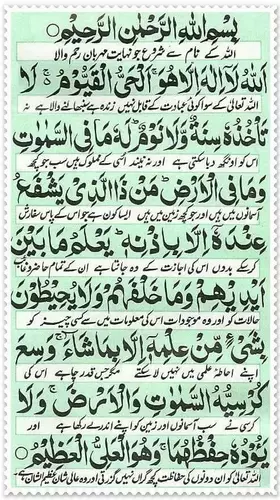 بِسْمِ اللهِ الرَّحْمٰنِ الرَّحِيْمِ
اللہ کے نام سے شروع جو نہایت مہربان رحم والا
اَللهُ لَآ اِلٰهَ اِلَّا هُوَ ۚ اَلْحَيُّ الْقَيُّوْمُ ۚ لَا
اللہ تعالیٰ کے سوا کوئی عبادت کے قابل نہیں زندہ ہے سنبھالنے والا ہے نہ
تَاْخُذُهٗ سِنَةٌ وَّلَا نَوْمٌ ؕ لَهٗ مَا فِي السَّمٰوٰتِ
اس کو اونگھ دبا سکتی ہے اور نہ نیند اسی کے مملوک ہیں سب جو کچھ
وَمَا فِي الْاَرْضِ ؕ مَنْ ذَا الَّذِيْ يَشْفَعُ
آسمانوں میں ہیں اور جو کچھ زمین میں ہیں ایسا کون ہے جو اس کے پاس سفارش
عِنْدَهٗٓ اِلَّا بِاِذْنِهٖ ؕ يَعْلَمُ مَا بَيْنَ
کرسکے بدوں اس کی اجازت کے وہ جانتا ہے ان کے تمام حاضر و غائب
اَيْدِيْهِمْ وَمَا خَلْفَهُمْ ۚ وَلَا يُحِيْطُوْنَ
حالات کو اور وہ موجودات اس کی معلومات میں سے کسی چیز کو
بِشَيْءٍ مِّنْ عِلْمِهٖٓ اِلَّا بِمَا شَآءَ ۚ وَسِعَ
اپنے احاطۂ علمی میں نہیں لا سکتے مگر جس قدر چاہے اس کی
كُرْسِيُّهُ السَّمٰوٰتِ وَالْاَرْضَ ۚ وَلَا
کرسی نے سب آسمانوں اور زمین کو اپنے اندر لے رکھا ہے اور
يَـُٔوْدُهٗ حِفْظُهُمَا ۚ وَهُوَ الْعَلِيُّ الْعَظِيْمُ
اللہ تعالیٰ کو ان دونوں کی حفاظت کچھ گراں نہیں گزرتی اور وہ عالی شان عظیم الشان ہے